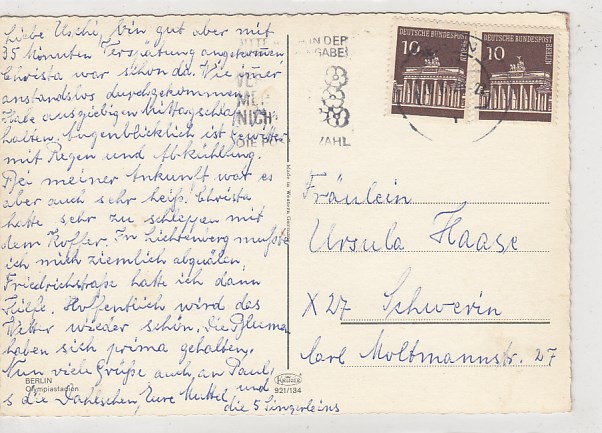 Liebe Uschi, bin gut aber mit
35 Minuten Verspätung angekommen
Christa war schon da. Wie immer
anstandslos durchgekommen.
Habe ausgiebigen Mittagschlaf ge-
halten. Augenblicklich ist Gewitter
mit Regen und Abkühlung.
Bei meiner Ankunft war es
aber auch sehr heiß. Christa
hatte sehr zu schleppen mit
dem Koffer. In Lichtenberg mußte
ich mich ziemlich abquälen,
Friedrichstraße hatte ich dann
Hilfe. Hoffentlich wird das
Wetter wieder schön. Die Pflumen
haben sich prima gehalten.
Nun viele Grüße auch an Paul,
s die Eure Muttel und
die 5 Singerleins
BERLIN
Olympiastadion
Krüger
921/134
Made in Western Germany
IN DER
NICHT
ZAHL
10 DEUTSCHE BUNDESPOST BERLIN
10 DEUTSCHE BUNDESPOST BERLIN
Fräulein
Ursula Haase
X 27 Schwerin
Carl Moltmannstr. 27